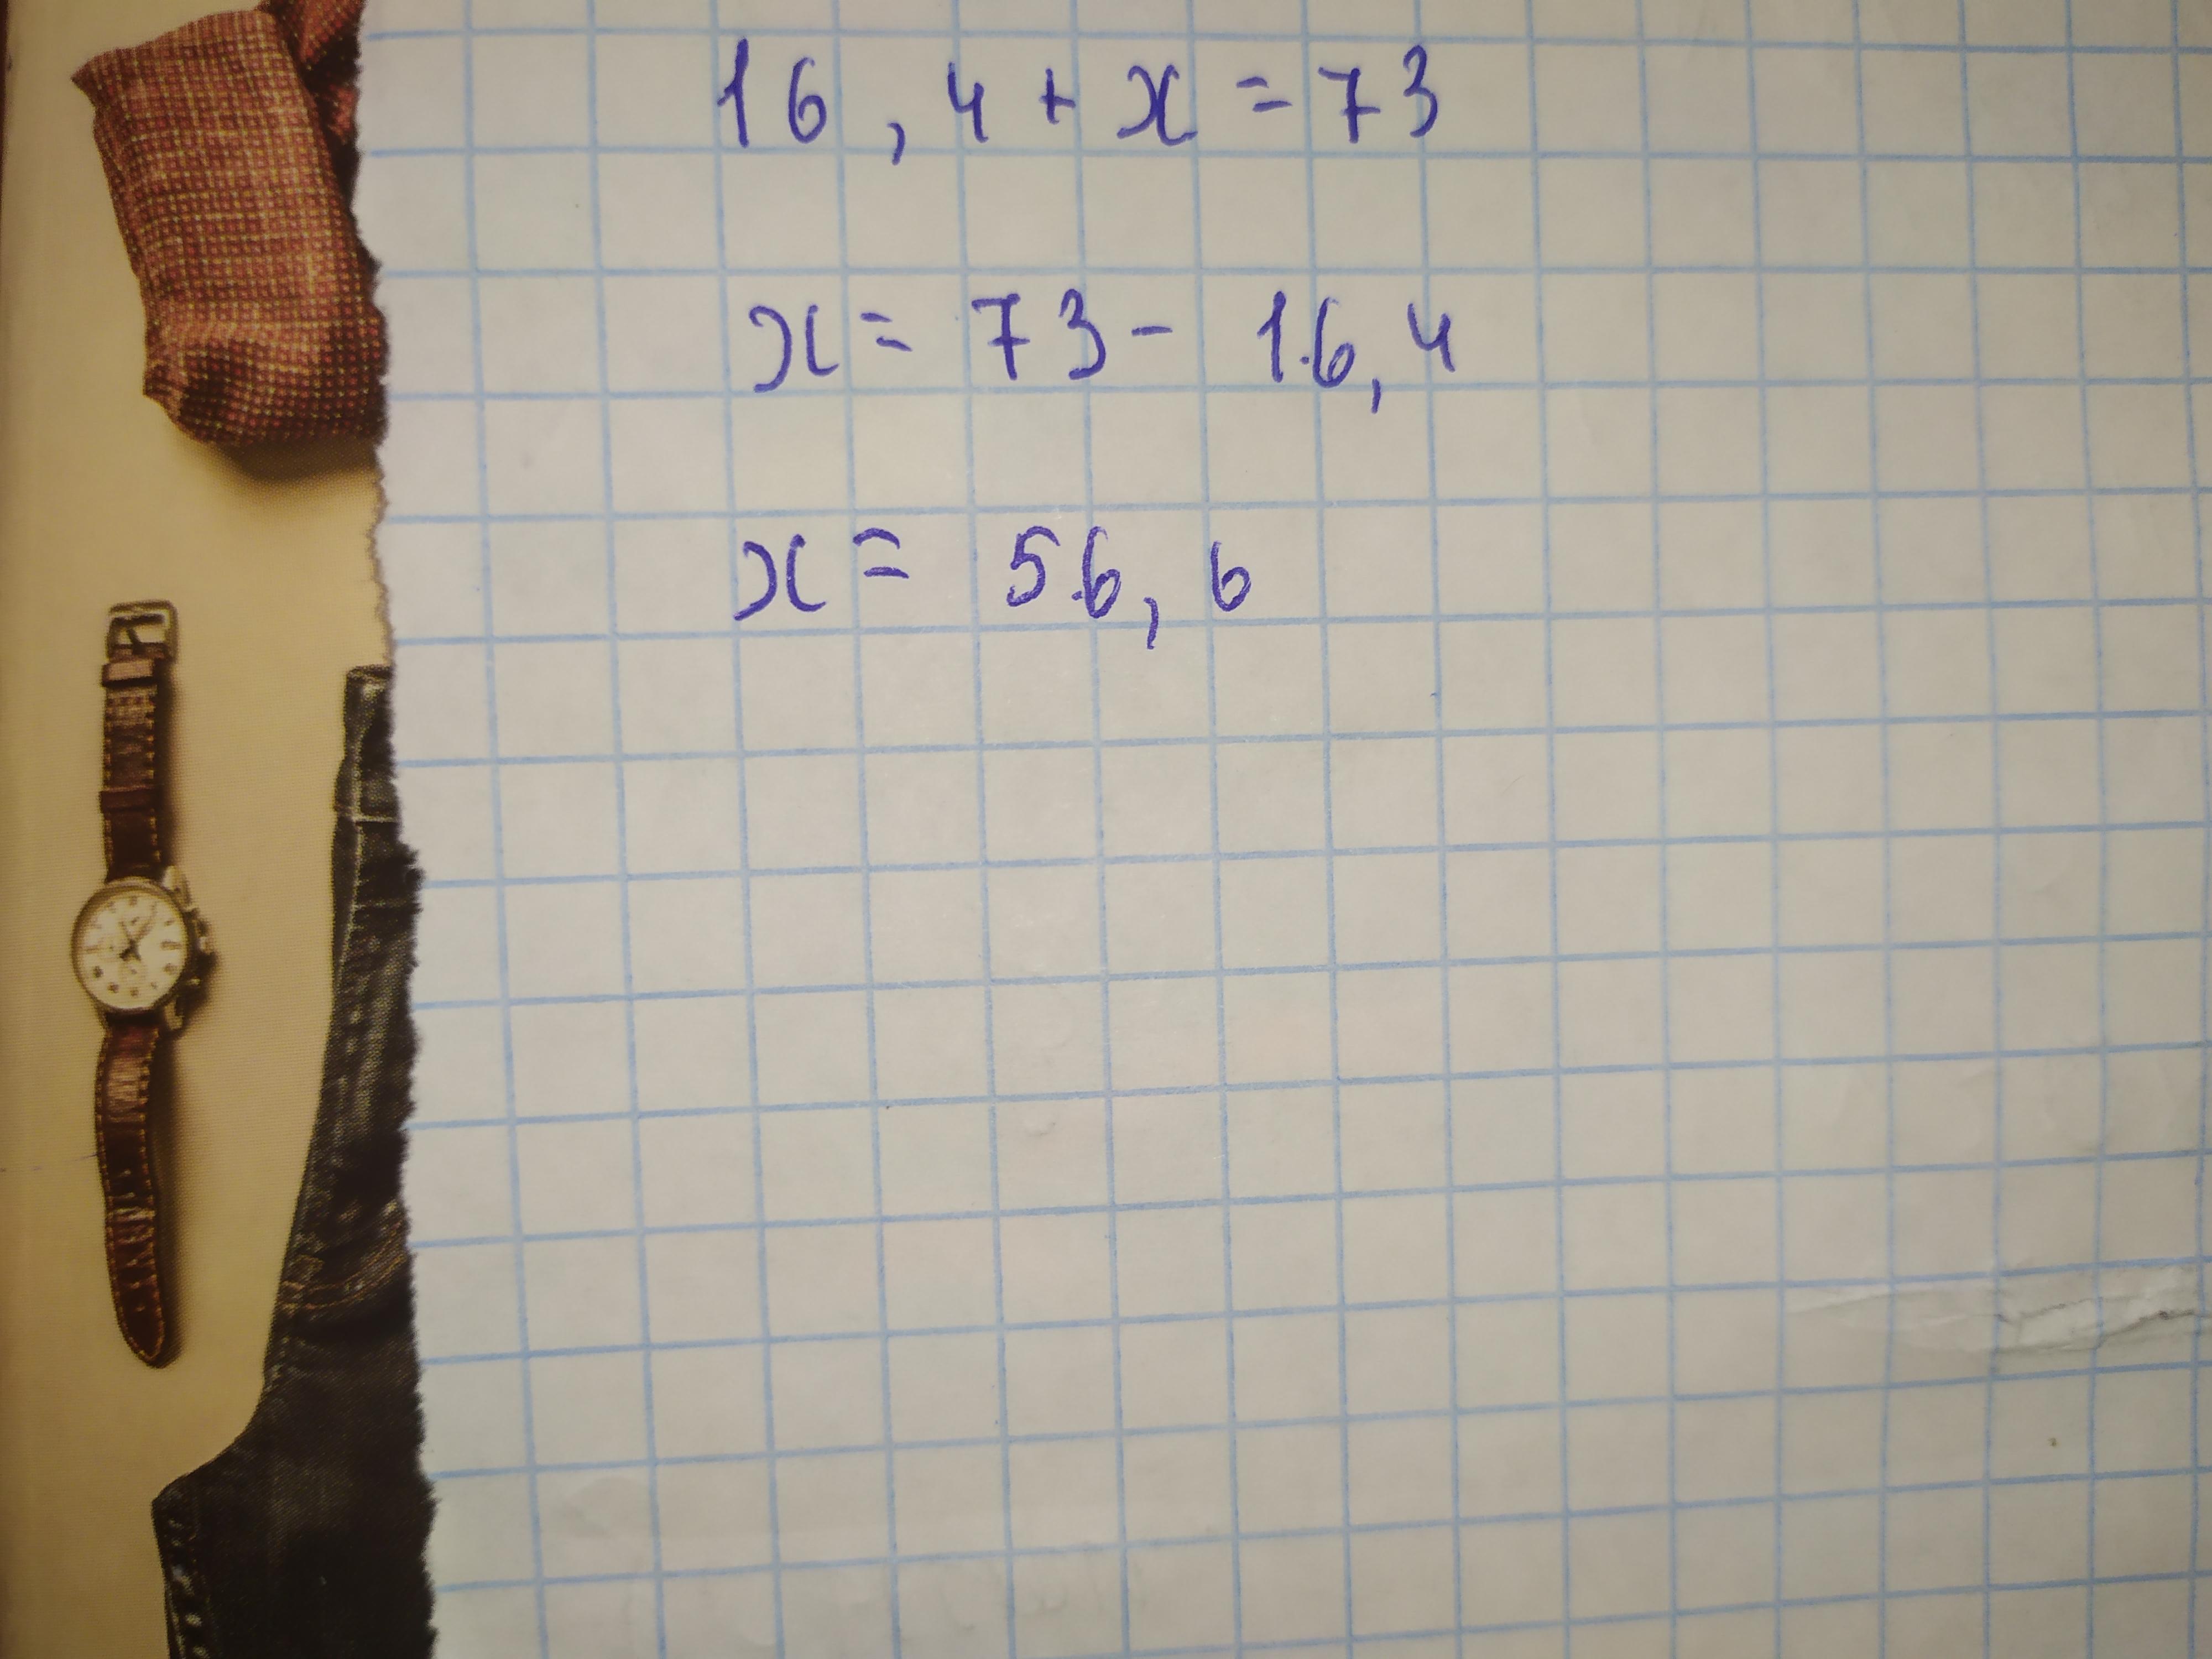 16,4 + x = 73
x = 73 - 16,4
x = 56,6